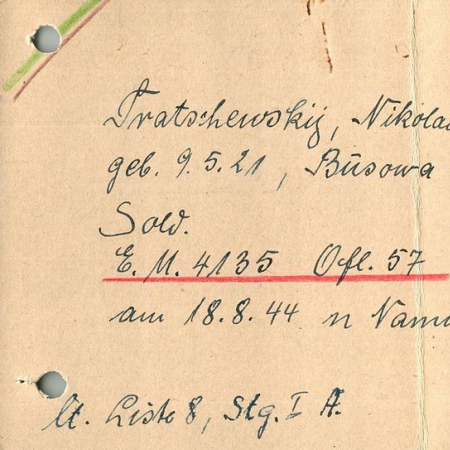 Tratschewskij, Nikolai
geb. 9.5.21, Busowa
Sold.
E. M. 4135 Ofl. 57
am 18.8.44 n
lt. Liste 8, Stg. I A.